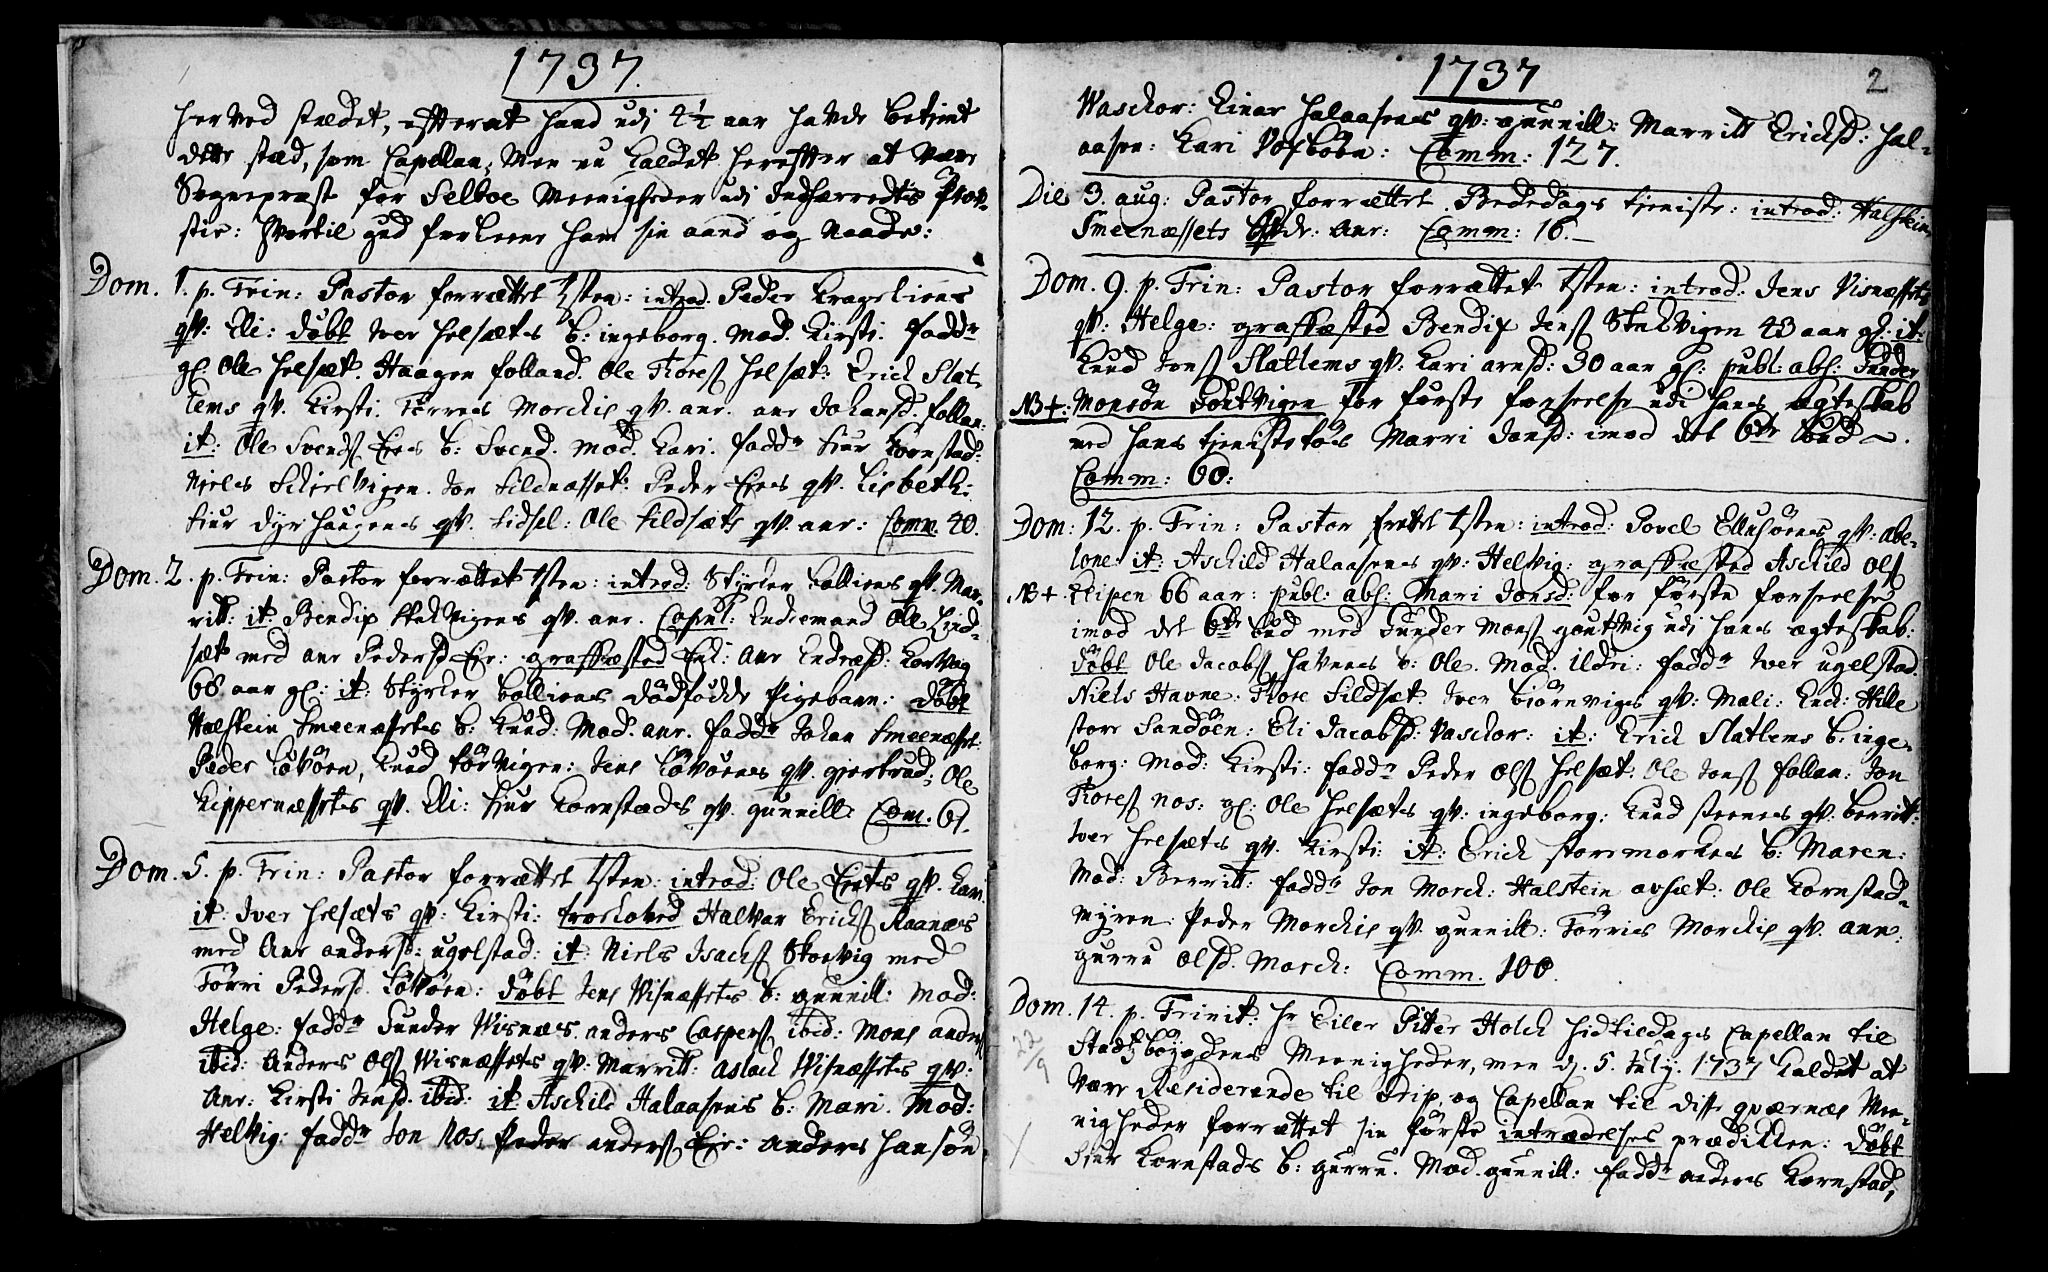 1737.
herved stædet, efterat hand udj 4½ aar hafde betient
dette stæd, som Capellan, Men nu Kaldet herefter at være
Sognepræst for Selboe Meenigheder udj Indherreds Prov-
stie: Hvortil gud forleene ham sin aand og Naade:
Dom. 1. p. Trin: Pastor forrættet Tsten: introd. Peder Krageliens
qv: Eli: döbt Iver Helsæts b: ingeborg. Mod. Kirsti. fadd.r
gl. Ole Helsæt. Haagen folland. Ole Tores. Helsæt: Erich Slat-
lems qv. Kirsti. Törres Morchis qv. anr. anr Johansd. follan:
it: Ole Svends. Eies b: Svend. Mod. Kari. fadd.r Siur Kornstad:
Niels Schielvigen. Jon Sildnæsset: Peder Eies qv. Lisbeth:
Siur dyrhaugens qv. Sidsel: Ole Sildsæts qv. anr: Comm. 40.
Dom. 2. p. Trin: Pastor forrættet Tsten: introd: Styrker bolliens qv. Mar-
rit: it: Bendix Stelvigens qv. anr. Copul: Enckemand Ole Lind-
sæt med anr Pedersd. Eie: graffæsted Enk: Anr Endresd: Korvog
68 aar gl: it: Styrker bolliens dödfödde Pigebarn: döbt
Halstein Smeenæssetes b: Knud: Mod. anr. fadd.r Johan Smeenæsset:
Peder Lövöen, Knud Sörvigen: Jens Lövöens qv. giertrud; Ole
Kippernæssetes qv. Eli: Siur Kornstads qv. gunnill: Com. 61.
Dom. 5. p. Trin: Pastor forrættet Tsten: introd: Ole Eiets qv. Kari.
it: Iver Helsæts qv: Kirsti: troeloved Halvar Erichs. Staanæs
med Anr anders d: ugelstad: it: Niels Isachs. Skoevig med
Törri Pedersd. Lövöen: döbt Jens Visnæssetes b: gunnill: Mod:
Helge: fadd.r Gunder Visnæs. anders Caspers. ibid: Mons anders.
ibid: Anders Ols. Visnæssetes qv: Marrit: aslach Visnæssetes qv:
Anr: Kirsti Jensd. ibid: it: Aschild Halaasens b: Mari. Mod:
Helvig: fadd.r Jon Nos. Peder anders. Eie: anders Hansön
1737
2
Vaschor: Einar Halaasens qv: gunnill: Marrit Erichsd: Hal-
aasen: Kari Vosböen: Comm: 127.
Die 3. aug: Pastor forrættet Bededags tieniste: introd: Halstein
Smeenæssets qv: Anr: Comm: 16.
Dom. 9. p. Trin: Pastor forrættet Tsten: introd: Jens Visnæssetes
qv: Helge: graffæsted Bendix Jens. Stelvigen 43 aar gl: it:
Knud Jons. Slatlems qv. Kari arnsd: 30 aar gl: publ: abs: Gunder
NB+: Monsön Goutvigen for förste forseelse udj hans ægteskab
med hans tienistetös Marri Jonsd: imod det 6te bud.
Comm: 60:
Dom: 12. p. Trin: Pastor frettet Tsten: introd: Povel Ellusöens qv: abe-
lone: it: Aschild Halaasens qv: Helvig: graffæsted Aschild Ols.
NB+. Klipen 66 aar: publ: abs: Mari Jonsd: for förste forseelse
imod det 6te bud med Gunder Mons. goutvig udj hans ægteskab:
döbt Ole Jacobs. Havnes b: Ole. Mod. Ildri: fadd.r Iver ugelstad.
Niels Havne: Tore Sildsæt. Iver biörnviges qv: Mali: End: Hille
store Sandöen: Eli Jacobsd: Vaschor: it: Erich Slatlems b: inge-
borg: Mod: Kirsti: fadd.r Peder Ols. Helsæt: Ole Jons. follan: Jon
Tores. Nos: gl: Ole Helsæts qv: ingeborg: Knud steenes qv: berrit:
Iver Helsæts qv. Kirsti: it: Erich stormorkes b: Maren:
Mod: Berrit: fadd.r Jon Morch: Halstein avsæt: Ole Kornstad-
Myren: Peder Morchis qv. gunnill: Törris Morchis qv. ann:
gurru Olsd. Morch: Comm: 100.
Dom. 14. p. Trinit: Hr Eiler Pitter Holch hidtildags Capellan til
22/9
Stadsbögdens Meenigheder, men d. 5. July. 1737 Kaldet at
være Residerende til Grip, og Capellan til disse qværnæs Mee-
nigheder forrættet sin förste intrædelses prædicken: döbt
Siur Kornstads b: gurru. Mod. gunnill: fadd.r anders Kornstad,